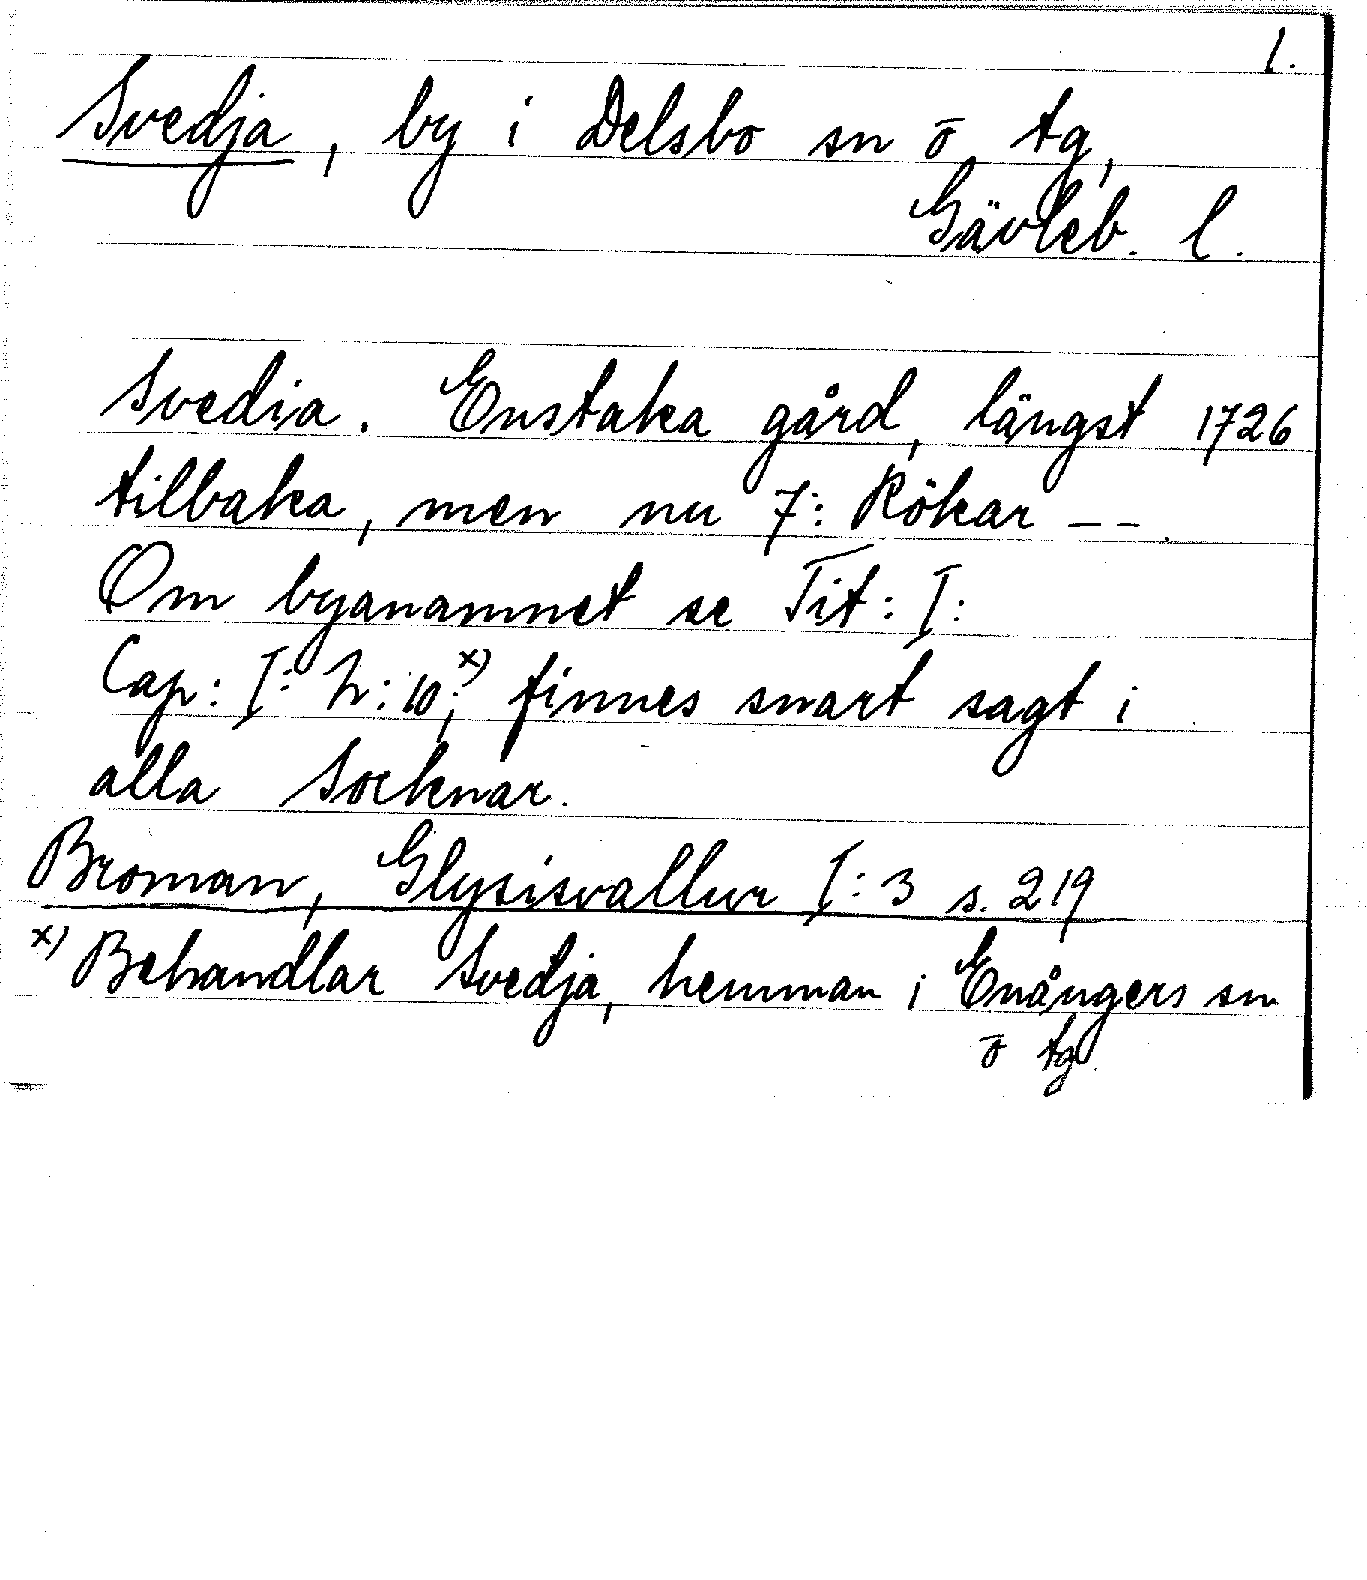 1.
Svedja, by i Delsbo sn o tg,
Gävleb. l.
Svedia. Enstaka gård, längst 1726
tilbaka, men nu 7: Rökar --.
Om byanamnet se Tit: I:
Cap: I: h: 10;x) finnes snart sagt i
alla Socknar.
Broman, Glysisvallur I:3 s. 219
x) Behandlar Svedja, hemman i Enångers sn
o tg.